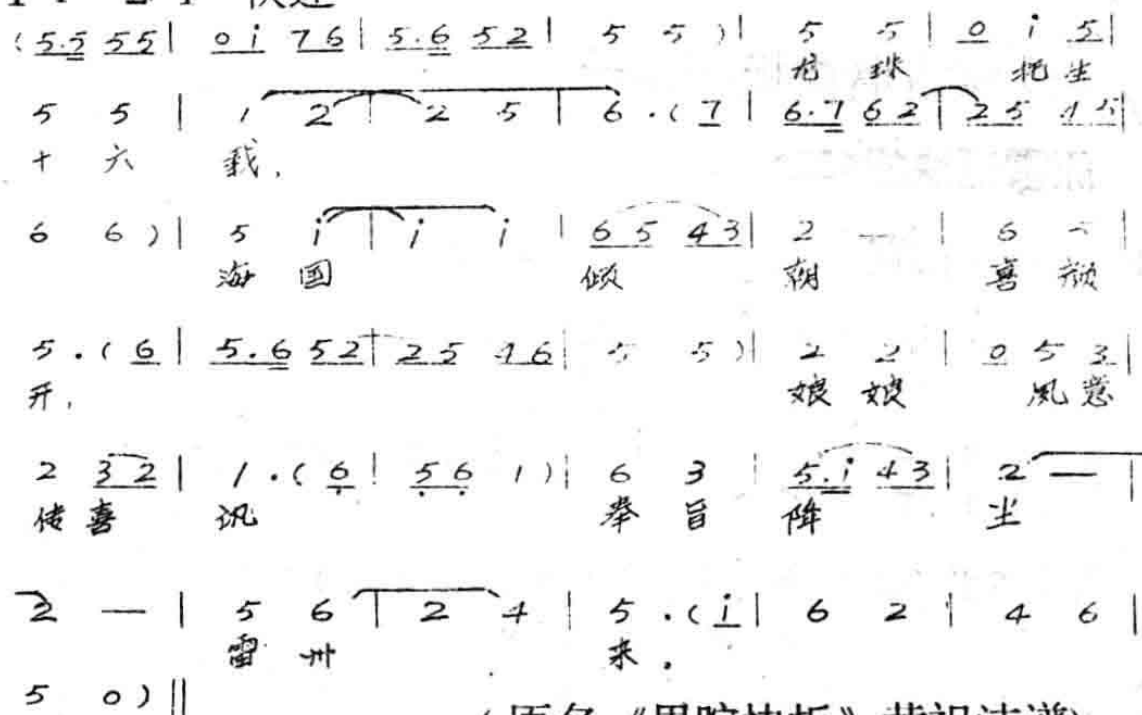 (5.5 55 | 0 i 76 | 5.6 52 | 5 5 ) | 5 5 | 0 i 5 |
龙 珠 托 生
5 5 | 1 2 | 2 5 | 6 . ( 7 | 6.7 62 | 25 45 |
十 六 载,
6 6 ) | 5 i | i i | 65 43 | 2 — | 6 5 |
海 国 倾 朝 喜 颜
5 . ( 6 | 5.6 52 | 25 46 | 5 5 ) | 2 2 | 0 5 3 |
开, 娘 娘 凤 意
2 32 | 1 . ( 6 | 56 1 ) | 6 3 | 5.i 43 | 2 — |
传 喜 讯 奉 旨 降 坐
2 — | 5 6 | 2 4 | 5 . ( i | 6 2 | 4 6 |
雷 州 来 。
5 0 ) ‖